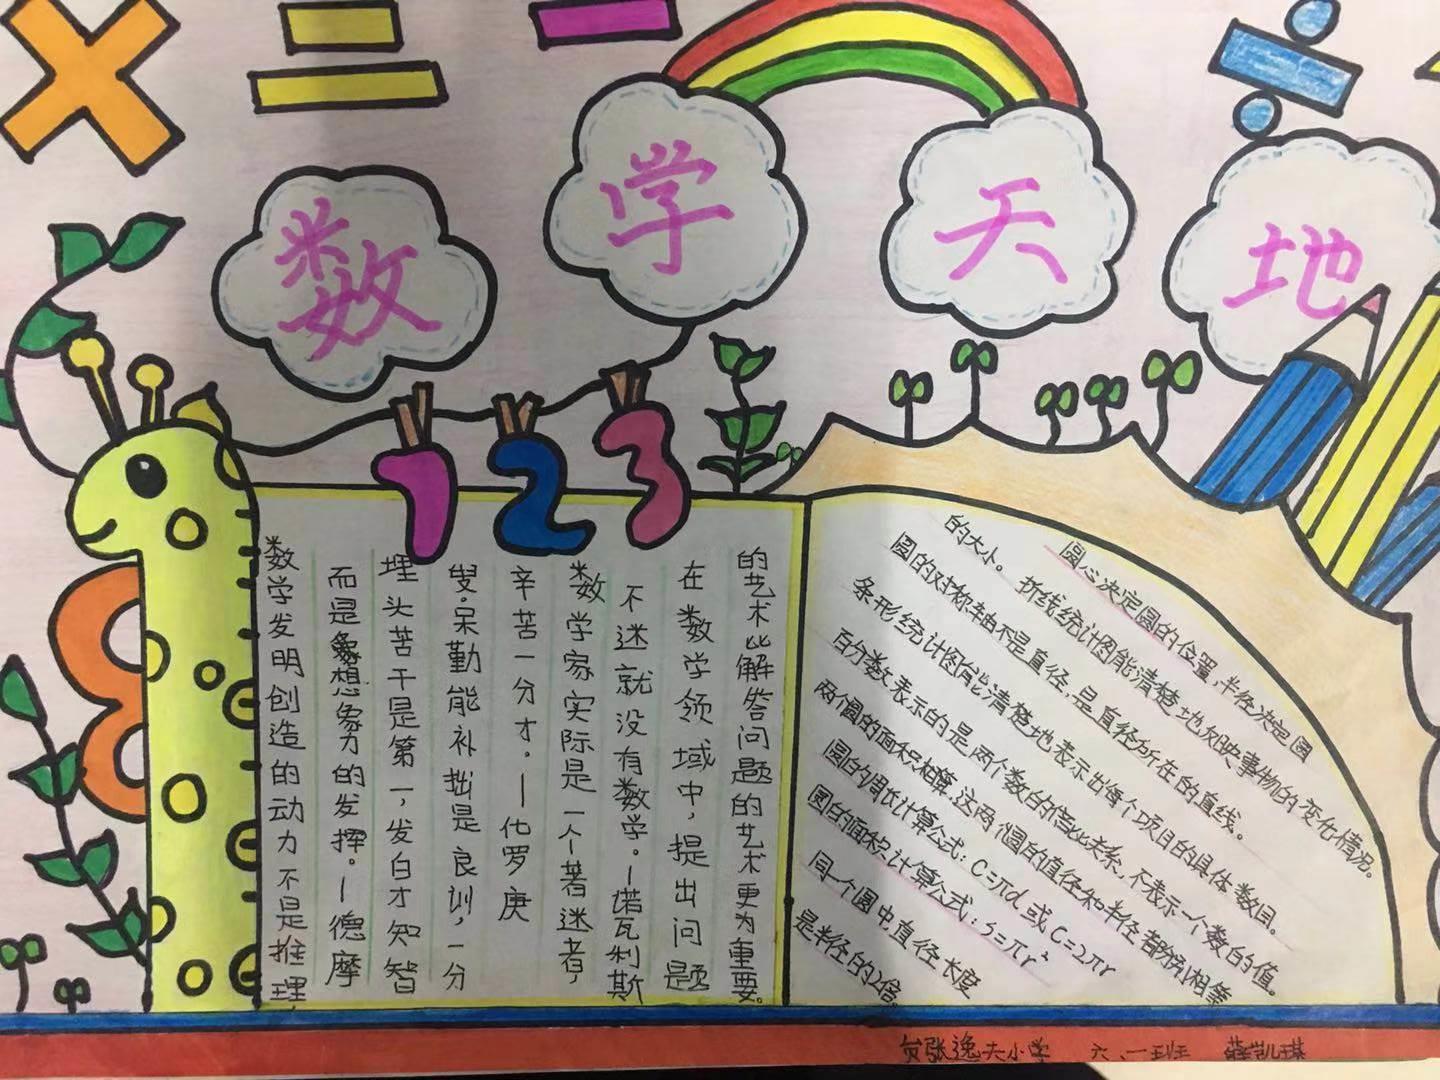 数学天地
1 2 3
数学发明创造的动力不是推理,
而是想象力的发挥。—德摩
埋头苦干是第一,发白才知智
叟呆勤能补拙是良训,一分
辛苦一分才。—化罗庚
数学家实际是一个著迷者,
不迷就没有数学。—诺瓦利斯
在数学领域中,提出问题
的艺术比解答问题的艺术更为重要。
圆心决定圆的位置,半径决定圆
的大小。折线统计图能清楚地反映事物的变化情况。
圆的对称轴不是直径,是直径所在的直线。
条形统计图能清楚地表示出每个项目的具体数目。
百分数表示的是两个数的倍比关系,不表示一个数的值。
两个圆的面积相等,这两个圆的直径和半径都分别相等
圆的周长计算公式:C=πd 或 C=2πr
圆的面积计算公式:S=πr²
同一个圆中直径长度
是半径的2倍。
张逸夫小学 六、一班 薛凯琪